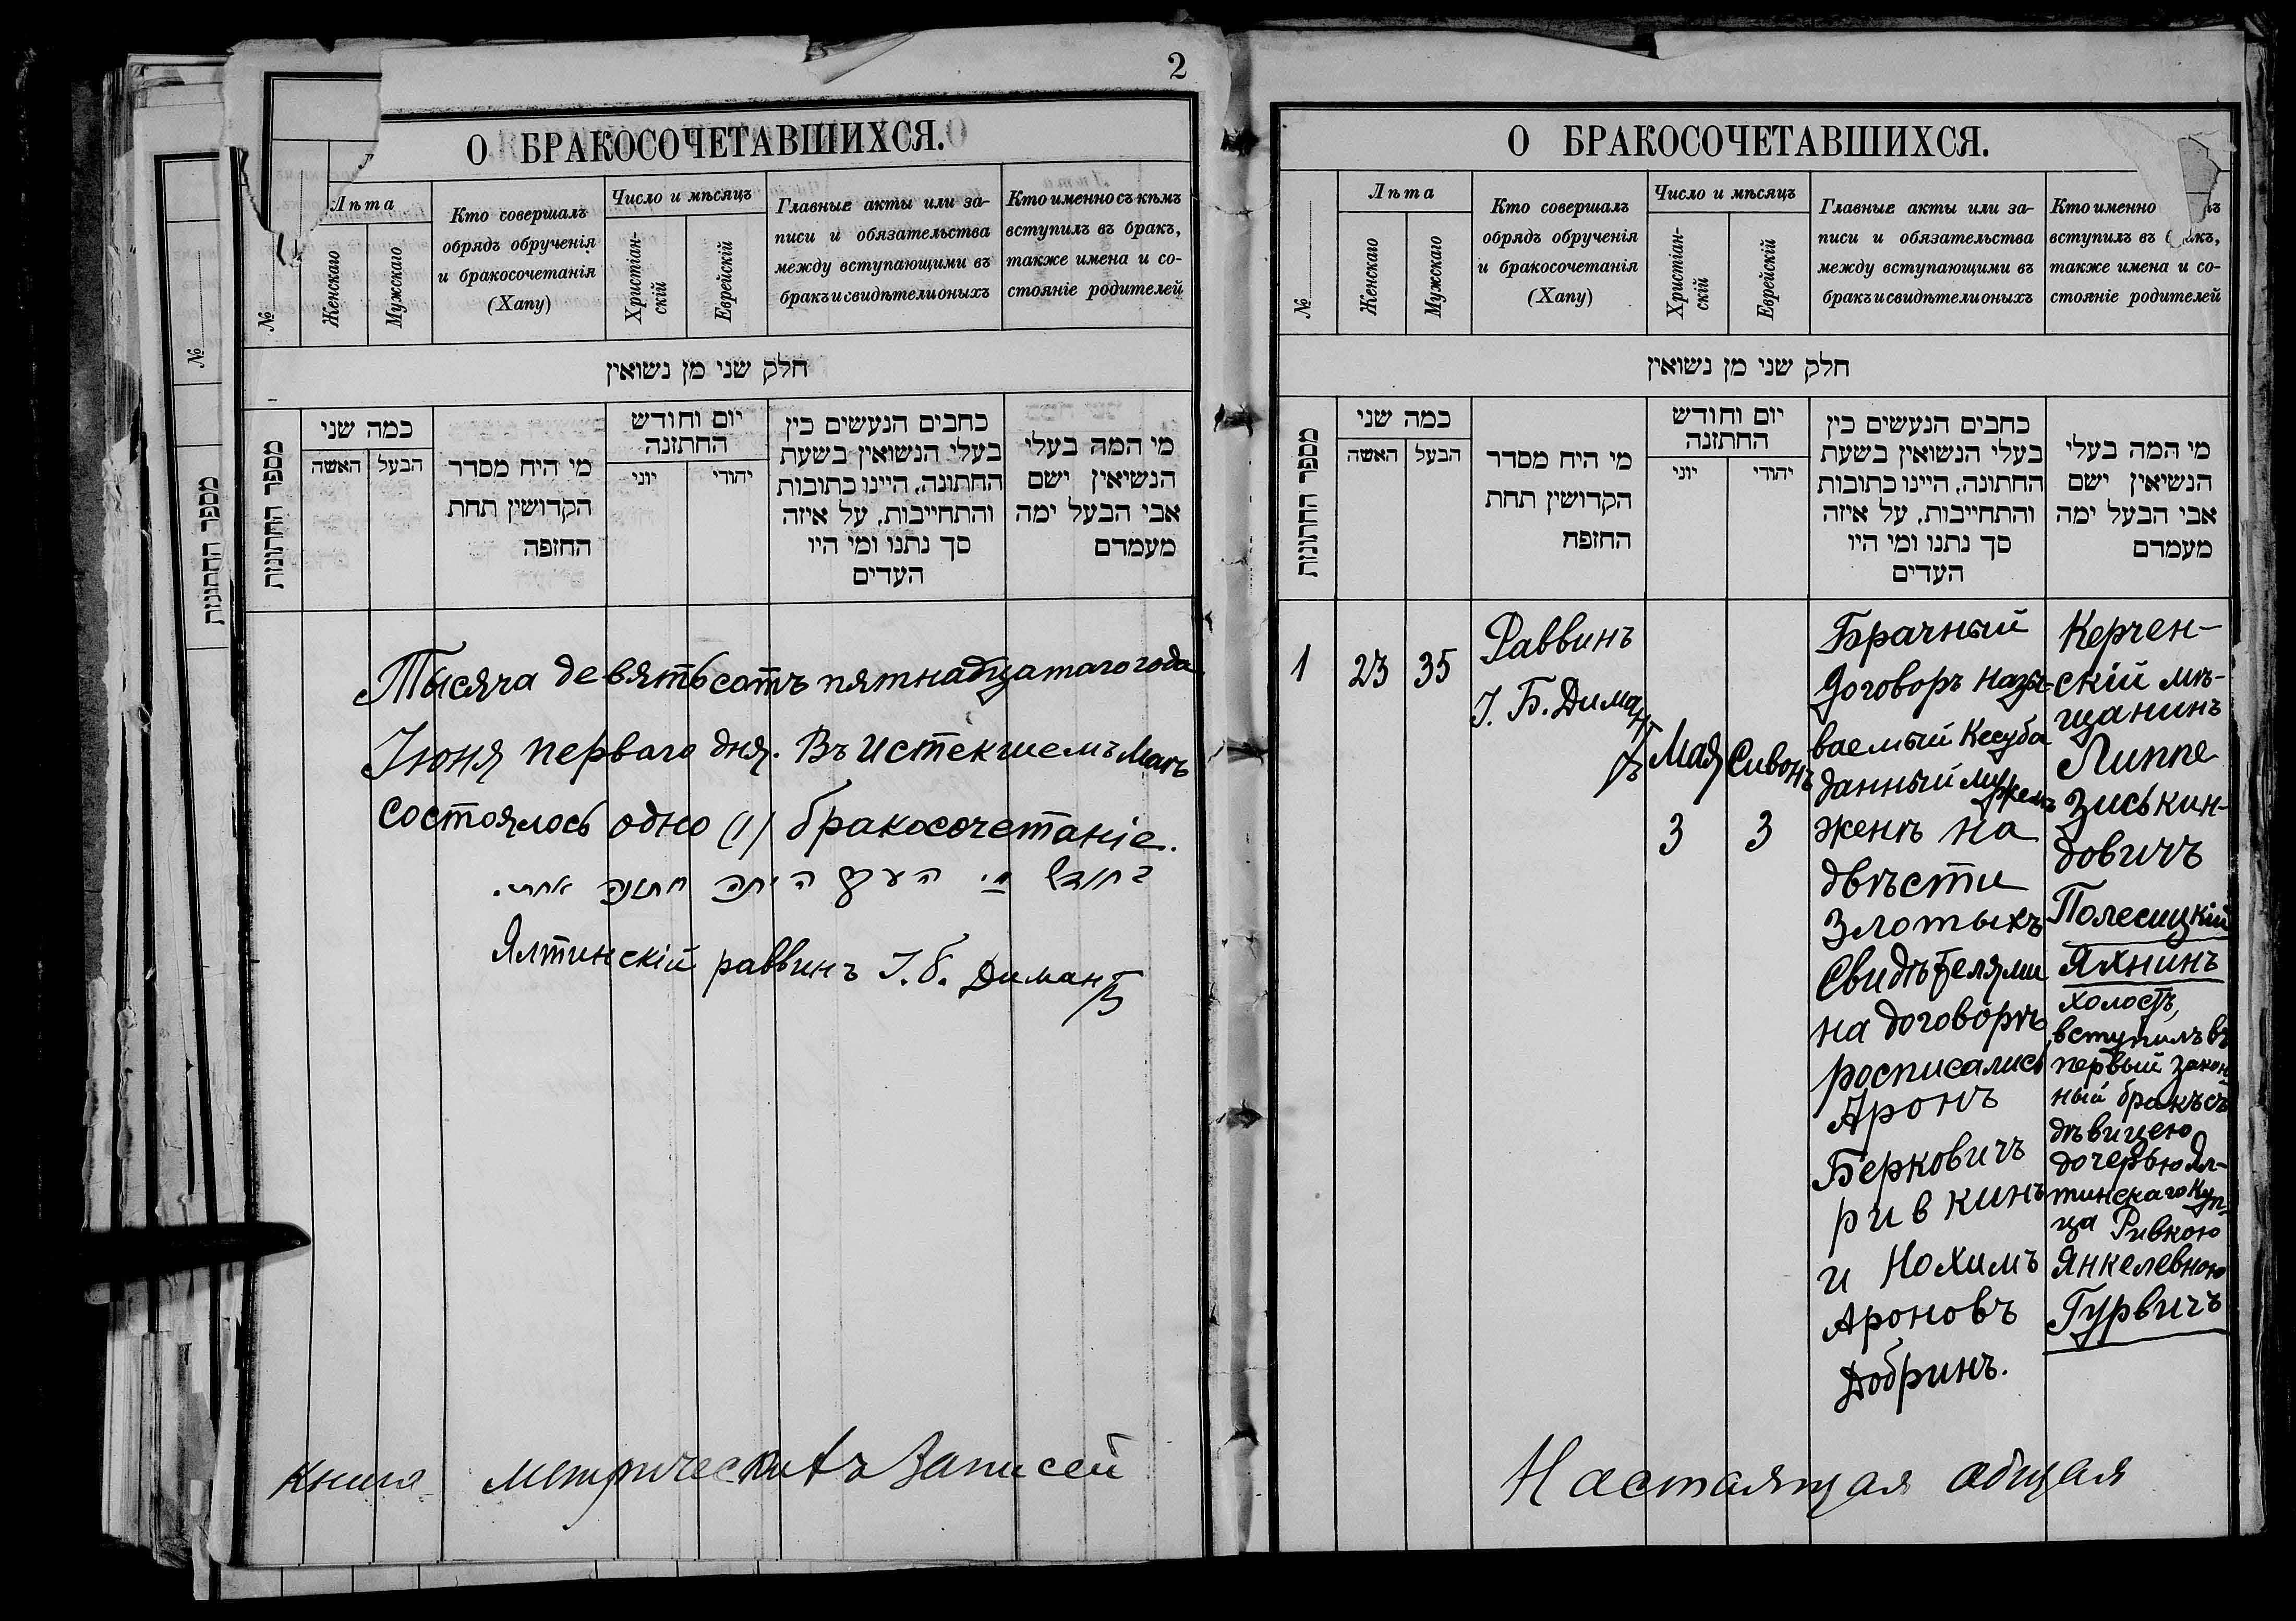 2
О БРАКОСОЧЕТАВШИХСЯ.
№
Лѣта
Женскаго
Мужскаго
Кто совершалъ
обрядъ обрученія
и бракосочетанія
(Хапу)
Число и мѣсяцъ
Христіан-
скій
Еврейскій
Главные акты или за-
писи и обязательства
между вступающими въ
бракъ и свидѣтели оныхъ
Кто именно съ кѣмъ
вступилъ въ бракъ,
также имена и со-
стояніе родителей
חלק שני מן נשואין
מספר החתונות
כמה שני
האשה
הבעל
מי היח מסדר
הקדושין תחת
החופה
יום וחודש
החתונה
יוני
יהודי
כתבים הנעשים בין
בעלי הנשואין בשעת
החתונה, היינו כתובות
והתחייבות, על איזה
סך נתנו ומי היו
העדים
מי המה בעלי
הנשיאין ישם
אבי הבעל ימה
מעמדם
Тысяча девятьсотъ пятнадцатаго года
Іюня перваго дня. Въ истекшемъ Маѣ
состоялось одно (1) бракосочетаніе.
היתה חתונה אחת.
Ялтинскій раввинъ І. Б. Димантъ
Книга метрическихъ записей
№
מספר החתונות
О БРАКОСОЧЕТАВШИХСЯ.
№
Лѣта
Женскаго
Мужскаго
Кто совершалъ
обрядъ обрученія
и бракосочетанія
(Хапу)
Число и мѣсяцъ
Христіан-
скій
Еврейскій
Главные акты или за-
писи и обязательства
между вступающими въ
бракъ и свидѣтели оныхъ
Кто именно
вступилъ въ
также имена и со-
стояніе родителей
חלק שני מן נשואין
מספר החתונות
כמה שני
האשה
הבעל
מי היח מסדר
הקדושין תחת
החזפה
יום וחודש
החתזנה
יוני
יהודי
כתבים הנעשים בין
בעלי הנשואין בשעת
החתונה, היינו כתובות
והתחייבות, על איזה
סך נתנו ומי היו
העדים
מי המה בעלי
הנשיאין ישם
אבי הבעל ימה
מעמדם
1
23
35
Раввинъ
І. Б. Димантъ
Мая
3
Сивонъ
3
Брачный
договоръ назы-
ваемый Кесуба
данный мужемъ
женѣ на
двѣсти
злотыхъ
Свидѣтелями
на договорѣ
росписались
Аронъ
Берковичъ
Ривкинъ
и Нохимъ
Ароновъ
Добринъ.
Керчен-
скій мѣ-
щанинъ
Липпе
Зиськин-
довичъ
Полесицкій
Яхнинъ
холостъ,
вступилъ въ
первый закон-
ный бракъ съ
дѣвицею
дочерью Ял-
тинскаго куп-
ца Ривкою
Янкелевною
Гурвичъ
Настоящая общая